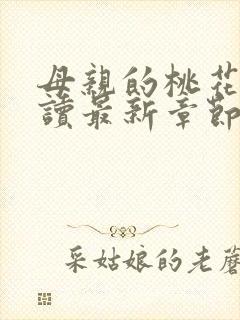 母親的桃花
讀最新章節
采姑娘的老蘑